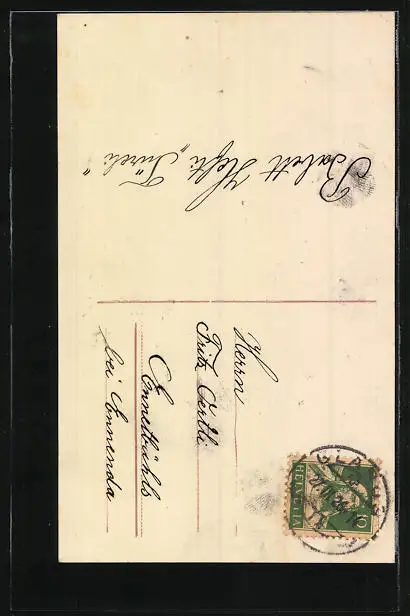 Babett Hefti „Türli“
Herrn
Fritz Oertli
Ennetbühls
bei Ennenda
HELVETIA
10
GLA